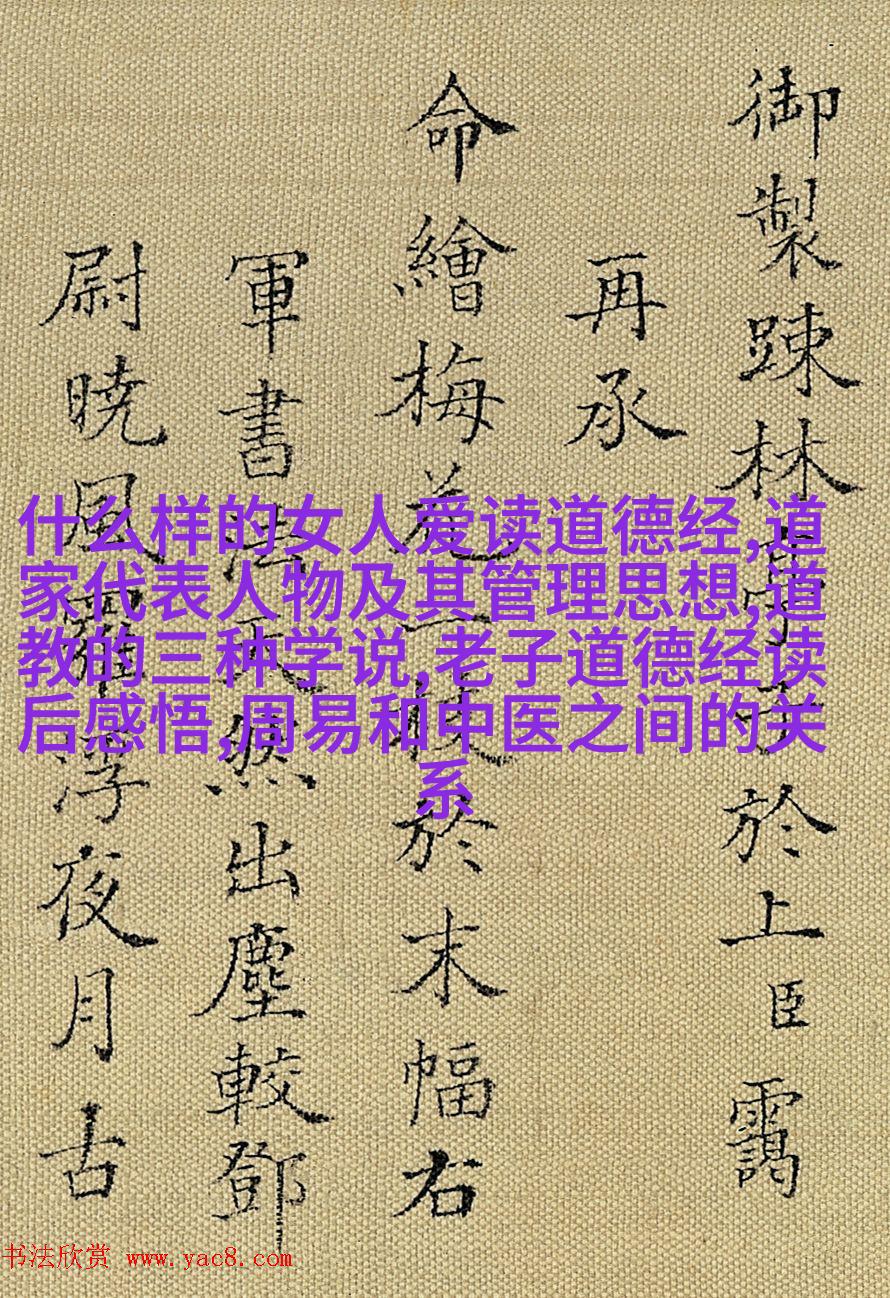 御製踈林字於上臣靄
再承
命繪梅花一枝於末幅右
軍書法天然出塵較鄧
尉暁風羅浮夜月古
什么样的女人爱读道德经,道
家代表人物及其管理思想,道
教的三种学说,老子道德经读
后感悟,周易和中医之间的关
系
书法欣赏 www.yac8.com